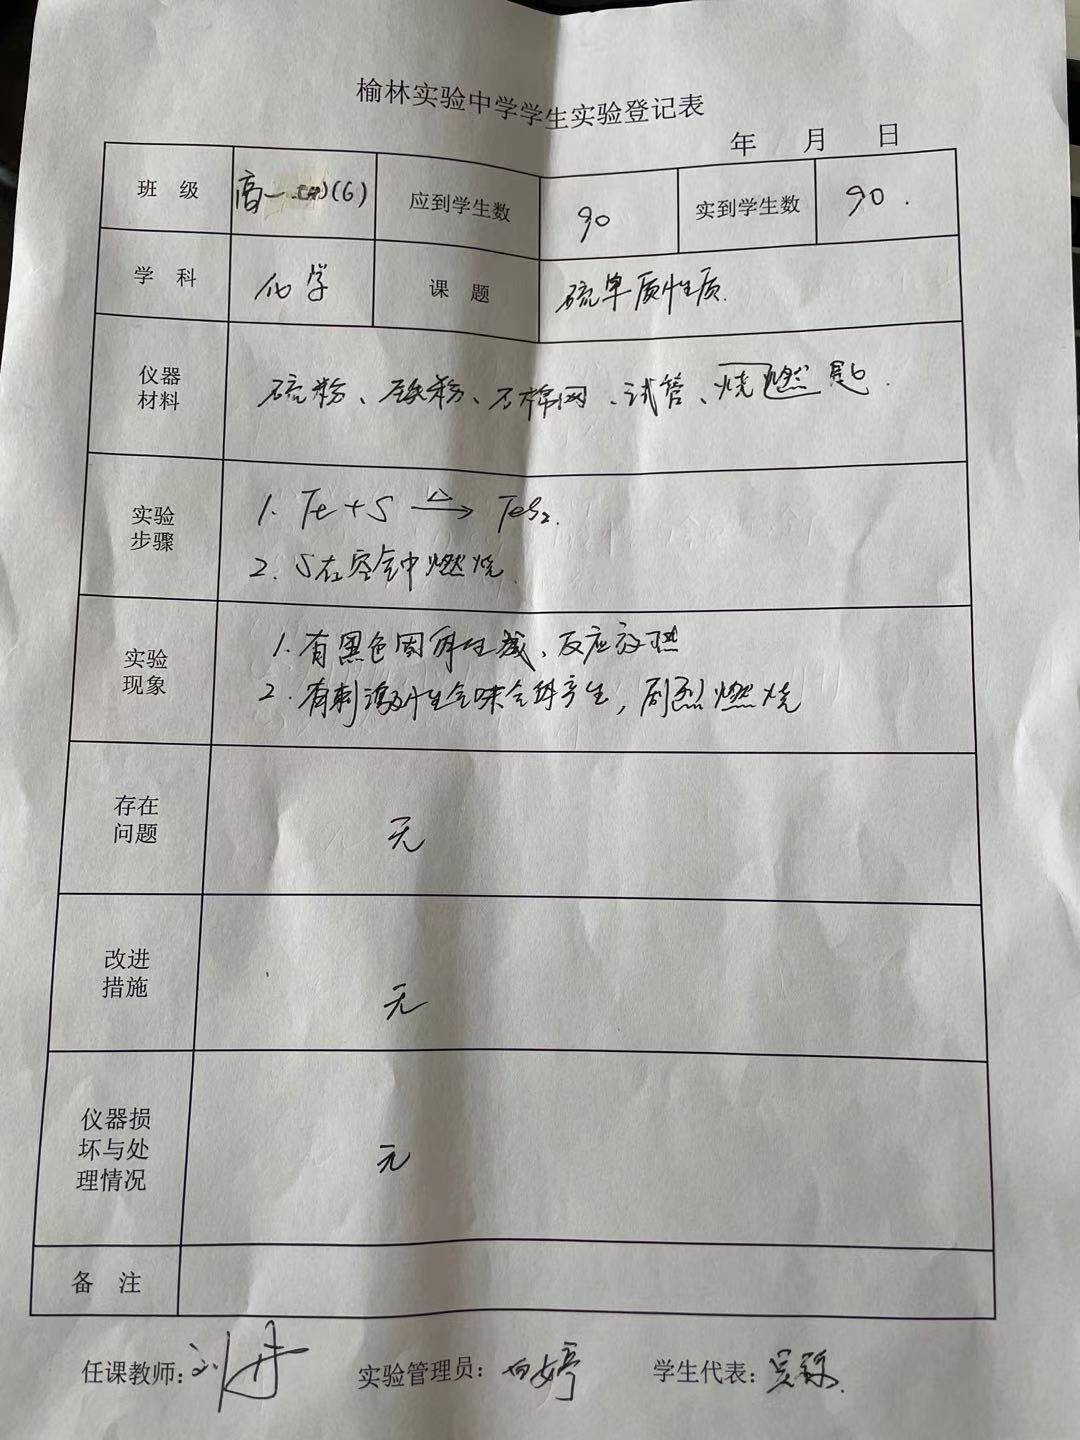 榆林实验中学学生实验登记表
年 月 日
班 级 高一 (6) 应到学生数 90 实到学生数 90.
学 科 化学 课 题 硫单质性质.
仪器材料 硫粉、铁粉、石棉网、试管、燃烧匙.
实验步骤 1. Fe+S △→ FeS₂.
2. S在空气中燃烧.
实验现象 1. 有黑色固体生成、反应放热
2. 有刺激性气味气体产生, 剧烈燃烧
存在问题 无
改进措施 无
仪器损坏与处理情况 无
备 注
任课教师: 刘丹 实验管理员: 白婷 学生代表: 吴